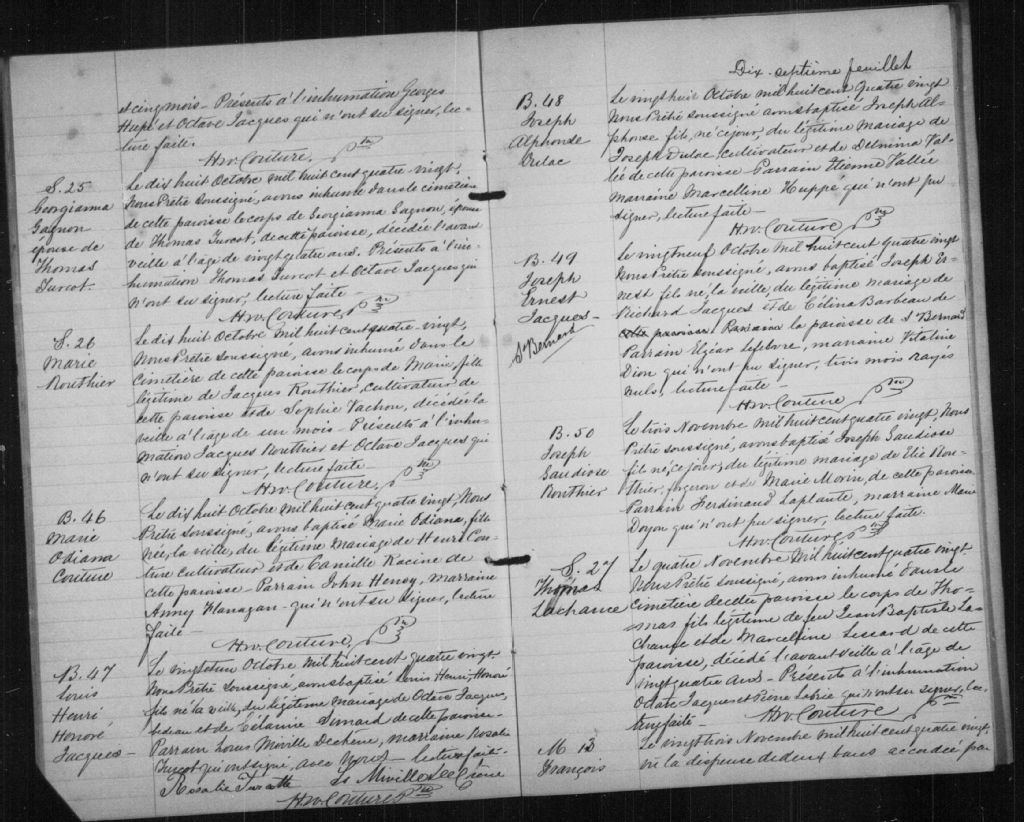 et cinq mois - Présents à l'inhumation Georges
Huppé et Octave Jacques qui n'ont su signer, lec-
ture faite.
H. W. Couture, Ptre
S. 25
Georgianna
Gagnon
épouse de
Thomas
Turcot.
Le dix huit Octobre mil huit cent quatre vingt,
Nous Prêtre soussigné, avons inhumé dans le cimetière
de cette paroisse le corps de Georgianna Gagnon, épouse
de Thomas Turcot, de cette paroisse, décédée l'avant
veille à l'âge de vingt quatre ans. Présents à l'in-
humation Thomas Turcot et Octave Jacques qui
n'ont su signer, lecture faite.
H. W. Couture, Ptre
S. 26
Marie
Routhier
Le dix huit Octobre mil huit cent quatre-vingt,
Nous Prêtre soussigné, avons inhumé dans le
cimetière de cette paroisse le corps de Marie, fille
légitime de Jacques Routhier, cultivateur de
cette paroisse et de Sophie Vachon, décédée la
veille à l'âge de un mois - Présents à l'inhu-
mation Jacques Routhier et Octave Jacques qui
n'ont su signer, lecture faite
H. W. Couture, Ptre
B. 46
Marie
Odiana
Couture
Le dix huit Octobre mil huit cent quatre vingt, Nous
Prêtre soussigné, avons baptisé Marie Odiana, fille
née, la veille, du légitime mariage de Henri Cou-
ture cultivateur et de Camille Racine de
cette paroisse - Parrain John Hensy, marraine
Anny Flanagan - qui n'ont su signer, lecture
faite -
H. W. Couture, Ptre
B. 47
Louis
Henri
Honoré
Jacques -
Le vingt et un Octobre mil huit cent quatre vingt
Nous Prêtre soussigné, avons baptisé Louis Henri, Honoré
fils né la veille, du légitime mariage de Octave Jacques,
bedeau et de Mélanie Simard de cette paroisse -
Parrain Louis Miville Dechêne, marraine Rosalie
Turcot qui ont signé, avec Nous - lecture faite -
Rosalie Turcotte Ls Miville DeChêne
H. W. Couture Ptre
Dix-septième feuillet
B. 48
Joseph
Alphonse
Dulac
Le vingt huit Octobre mil huit cent quatre vingt
Nous Prêtre soussigné avons baptisé Joseph Al-
phonse fils, né ce jour, du légitime mariage de
Joseph Dulac, cultivateur et de Delvina Val-
lée de cette paroisse Parrain Etienne Vallée
Marraine Marcelline Huppé qui n'ont pu
signer, lecture faite -
H. W. Couture Ptre
B. 49
Joseph
Ernest
Jacques -
St Bernard
Le vingt neuf Octobre Mil huit cent quatre vingt
Nous Prêtre soussigné, avons baptisé Joseph Er-
nest fils né, la veille, du légitime mariage de
Richard Jacques et de Célina Barbeau de
cette paroisse la paroisse de St Bernard
Parrain Elzéar Lefebvre, marraine Vitaline
Dion qui n'ont pu signer, trois mots rayés
nuls, lecture faite -
H. W. Couture Ptre
B. 50
Joseph
Gaudiose
Routhier
Le trois Novembre Mil huit cent quatre vingt, Nous
Prêtre soussigné, avons baptisé Joseph Gaudiose
fils né, ce jour, du légitime mariage de Elie Rou-
thier, forgeron et de Marie Morin, de cette paroisse
Parrain Ferdinand Laplante, marraine Marie
Doyon qui n'ont pu signer, lecture faite.
H. W. Couture, Ptre
S. 27
Thomas
Lachance
Le quatre Novembre Mil huit cent quatre vingt
Nous Prêtre soussigné, avons inhumé dans le
cimetière de cette paroisse le corps de Tho-
mas fils légitime de feu Jean Baptiste La-
chance et de Marceline Lessard de cette
paroisse, décédé l'avant veille à l'âge de
vingt quatre ans - Présents à l'inhumation
Octave Jacques et Pierre Labrie qui n'ont su signer, lec-
ture faite - H. W. Couture Ptre
M 13
François
Le vingt trois Novembre mil huit cent quatre vingt,
vu la dispense de deux bans accordée par